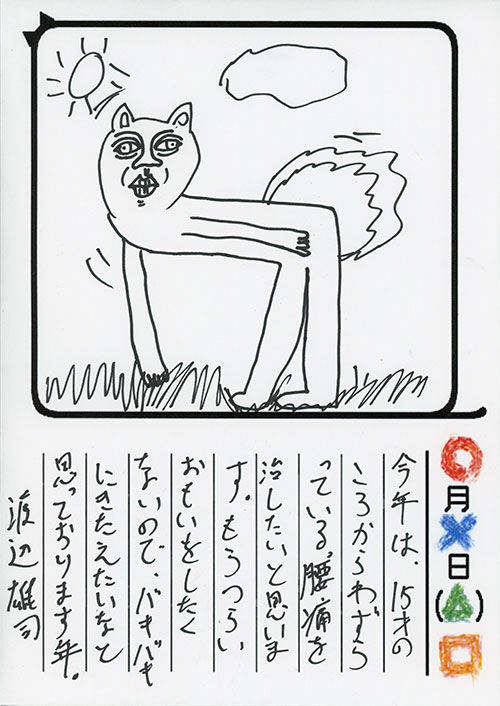 ○月×日(△)□
今年は、15才の
ころからわずら
っている、腰痛を
治したいと思いま
す。もうつらい
おもいをしたく
ないので、バキバキ
にきたえたいなと
思っております年。
渡辺雄司